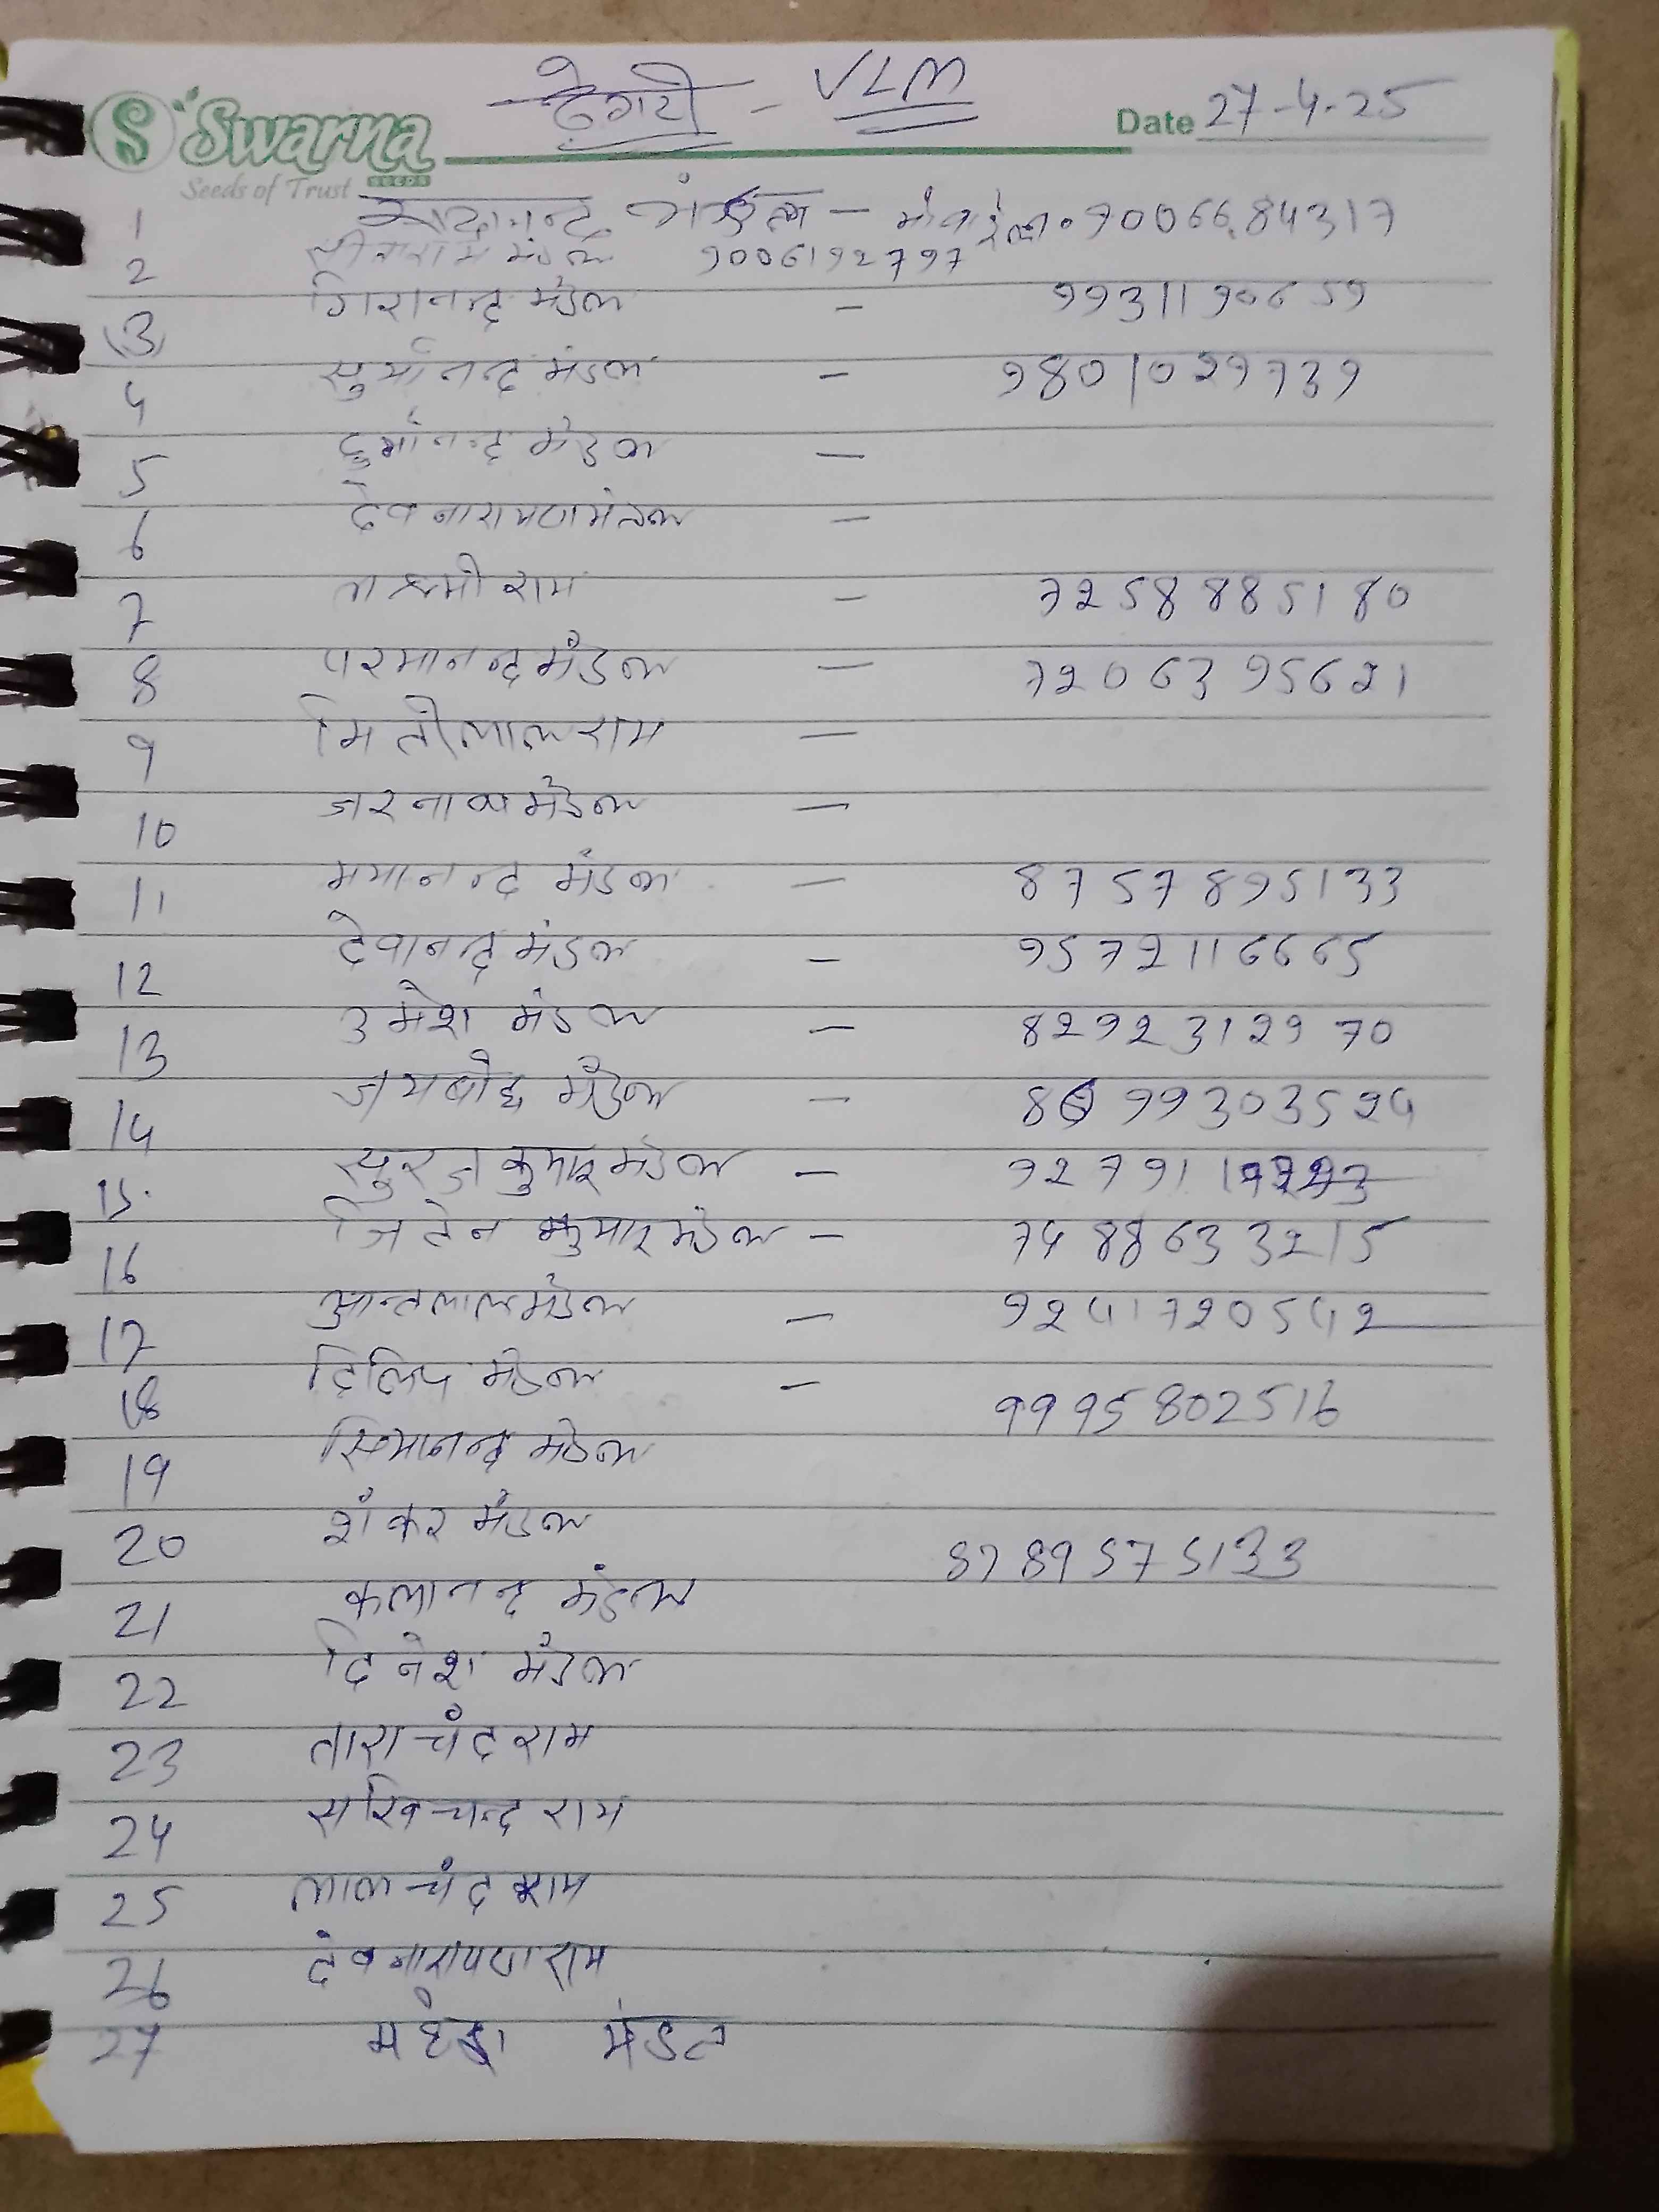 देगटी - VLM
Swarna
SEEDS
Seeds of Trust
Date 27-4-25
1 सदानन्द मंडल - मोबाईल० 7006684317
2 सीताराम मंडल 9006192797
गिरानन्द मंडल - 9931190659
(3) सुर्यानन्द मंडल - 9801029739
4 दुर्गानन्द मंडल -
5 देवनारायण मंडल -
6 लक्ष्मी राम - 7258885180
7 परमानन्द मंडल - 7206395621
8 मितीलाल राम -
9 मंडल -
10 मयानन्द मंडल - 8757895133
11 देवानन्द मंडल - 9572116665
12 उमेश मंडल - 8292312970
13 मंडल - 8699303524
14 सुरज कुमार मंडल - 927911
15. जितेन कुमार मंडल - 7488633215
16 मंडल - 9241720542
17 दिलिप मंडल - 9995802516
18 मंडल
19 शंकर मंडल
20 कलानन्द मंडल 8789575133
21 दिनेश मंडल
22 ताराचंद राम
23 सखिचन्द राम
24 लालचंद राम
25 देवनारायण राम
26 महेश मंडल
27